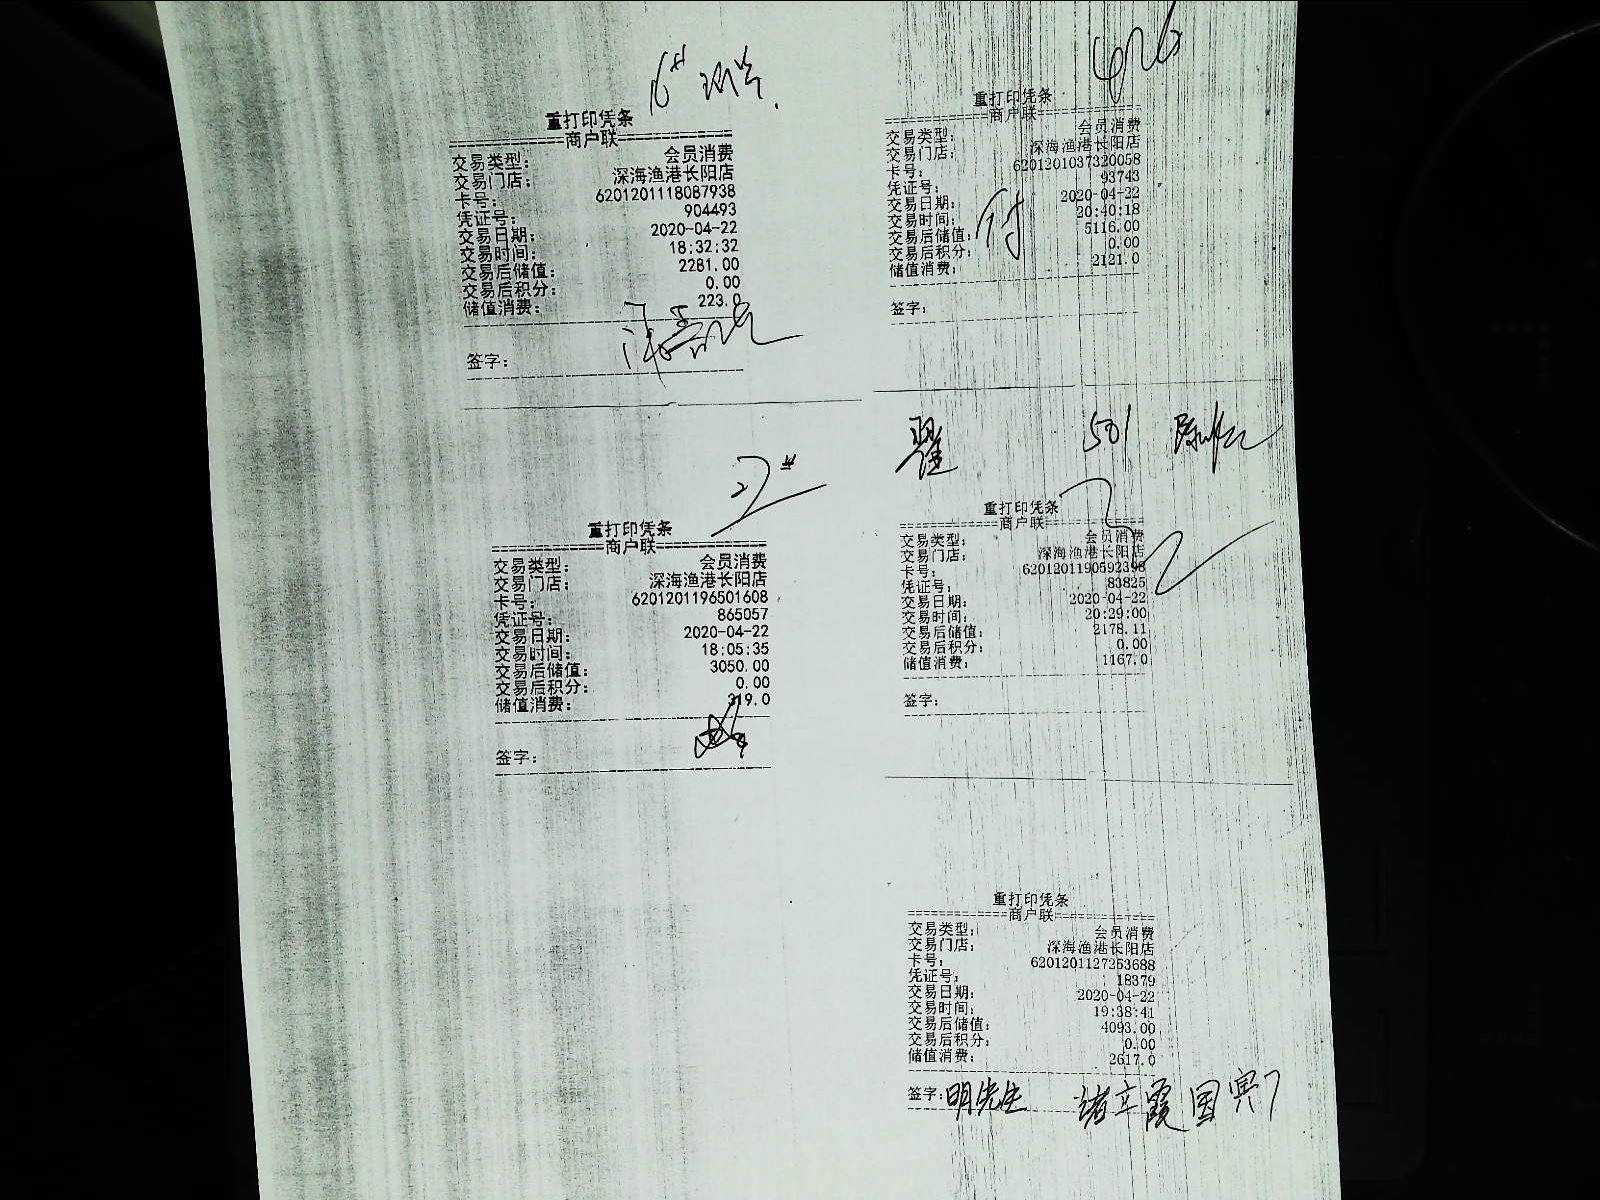 6#
重打印凭条
============商户联============
交易类型: 会员消费
交易门店: 深海渔港长阳店
卡号: 6201201118087938
凭证号: 904493
交易日期: 2020-04-22
交易时间: 18:32:32
交易后储值: 2281.00
交易后积分: 0.00
储值消费: 223.0
签字:
27#
重打印凭条
============商户联============
交易类型: 会员消费
交易门店: 深海渔港长阳店
卡号: 6201201196501608
凭证号: 865057
交易日期: 2020-04-22
交易时间: 18:05:35
交易后储值: 3050.00
交易后积分: 0.00
储值消费: 319.0
签字:
重打印凭条
============商户联============
交易类型: 会员消费
交易门店: 深海渔港长阳店
卡号: 6201201037320058
凭证号: 93743
交易日期: 2020-04-22
交易时间: 20:40:18
交易后储值: 5116.00
交易后积分: 0.00
储值消费: 2121.0
付
签字:
翟 501
重打印凭条
============商户联============
交易类型: 会员消费
交易门店: 深海渔港长阳店
卡号: 6201201190592398
凭证号: 83825
交易日期: 2020-04-22
交易时间: 20:29:00
交易后储值: 2178.11
交易后积分: 0.00
储值消费: 1167.0
签字:
重打印凭条
============商户联============
交易类型: 会员消费
交易门店: 深海渔港长阳店
卡号: 6201201127253688
凭证号: 18379
交易日期: 2020-04-22
交易时间: 19:38:41
交易后储值: 4093.00
交易后积分: 0.00
储值消费: 2617.0
签字: 明先生 诸立霞 国宾7